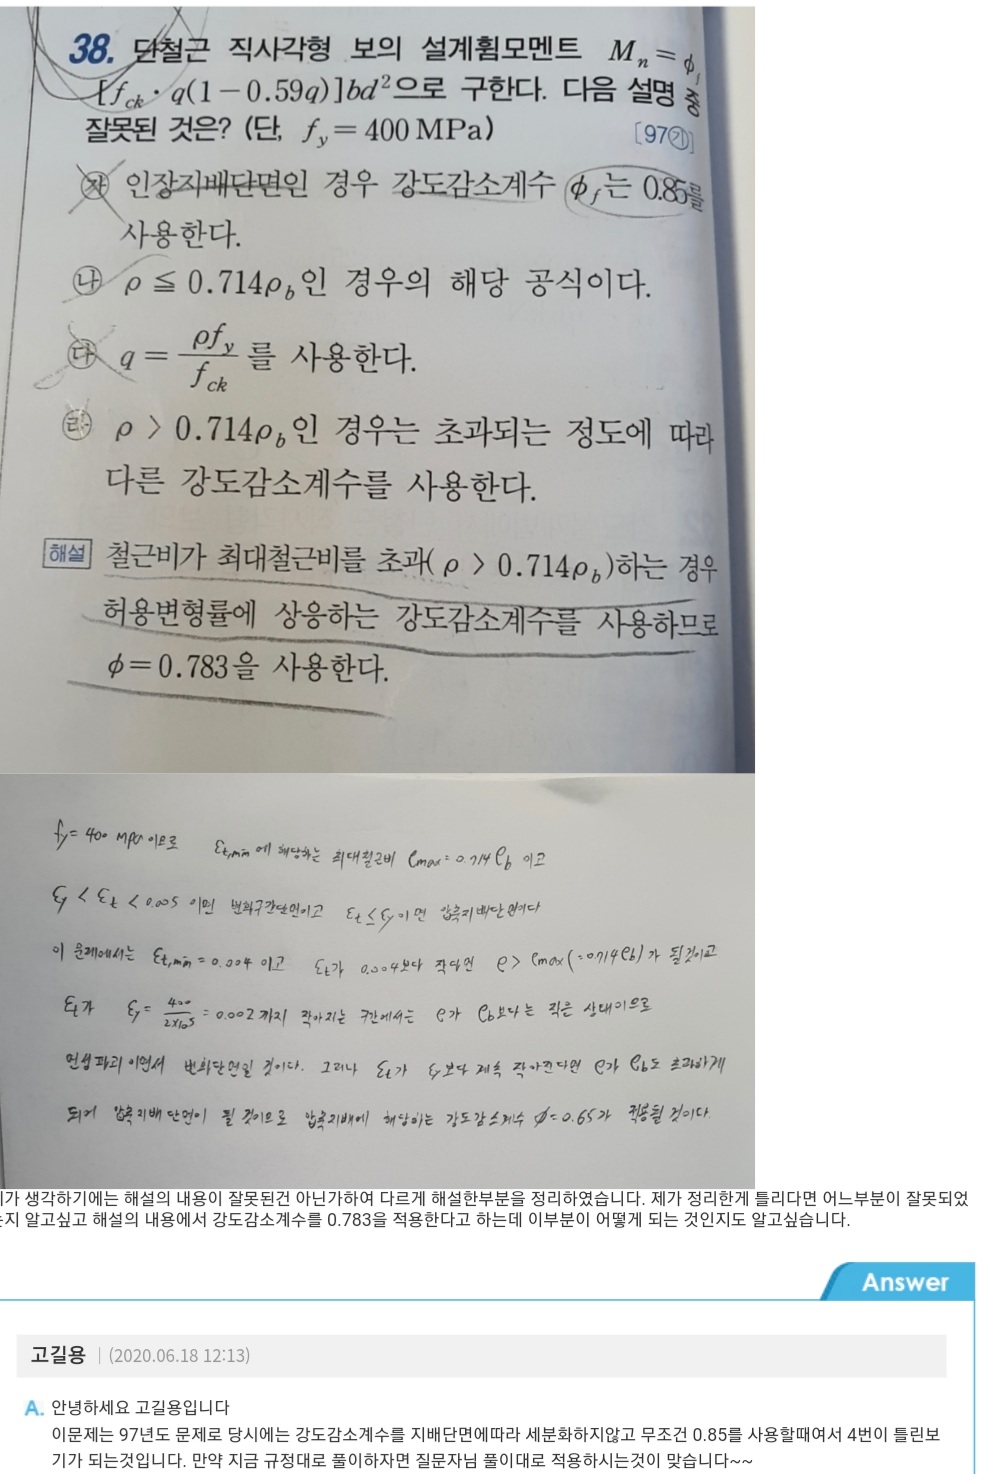 38. 단철근 직사각형 보의 설계휨모멘트 Mn = ϕf
[fck · q(1−0.59q)]bd²으로 구한다. 다음 설명 중
잘못된 것은? (단, fy = 400 MPa)
[97㉮]
㉮ 인장지배단면인 경우 강도감소계수 ϕf는 0.85를
사용한다.
㉯ ρ ≦ 0.714ρb인 경우의 해당 공식이다.
㉰ q = ρfy/fck 를 사용한다.
㉱ ρ > 0.714ρb인 경우는 초과되는 정도에 따라
다른 강도감소계수를 사용한다.
해설 철근비가 최대철근비를 초과(ρ > 0.714ρb)하는 경우
허용변형률에 상응하는 강도감소계수를 사용하므로
ϕ=0.783을 사용한다.
fy = 400 MPa 이므로 εt,min에 해당하는 최대철근비 ρmax = 0.714 ρb 이고
εy < εt < 0.005 이면 변화구간단면이고 εt ≤ εy이면 압축지배단면이다
이 문제에서는 εt,min = 0.004 이고 εt가 0.004보다 작다면 ρ > ρmax(=0.714ρb)가 될것이고
εt가 εy = 400/2×10⁵ = 0.002까지 작아지는 구간에서는 ρ가 ρb보다는 작은 상태이므로
연성파괴이면서 변화단면일 것이다. 그러나 εt가 εy보다 계속 작아진다면 ρ가 ρb도 초과하게
되어 압축지배단면이 될 것이므로 압축지배에 해당하는 강도감소계수 ϕ=0.65가 적용될 것이다.
가 생각하기에는 해설의 내용이 잘못된건 아닌가하여 다르게 해설한부분을 정리하였습니다. 제가 정리한게 틀리다면 어느부분이 잘못되었
지 알고싶고 해설의 내용에서 강도감소계수를 0.783을 적용한다고 하는데 이부분이 어떻게 되는 것인지도 알고싶습니다.
Answer
고길용 | (2020.06.18 12:13)
A. 안녕하세요 고길용입니다
이문제는 97년도 문제로 당시에는 강도감소계수를 지배단면에따라 세분화하지않고 무조건 0.85를 사용할때여서 4번이 틀린보
기가 되는것입니다. 만약 지금 규정대로 풀이하자면 질문자님 풀이대로 적용하시는것이 맞습니다~~